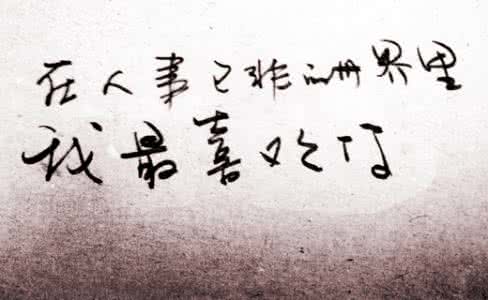 在人事已非的世界里
我最喜欢你